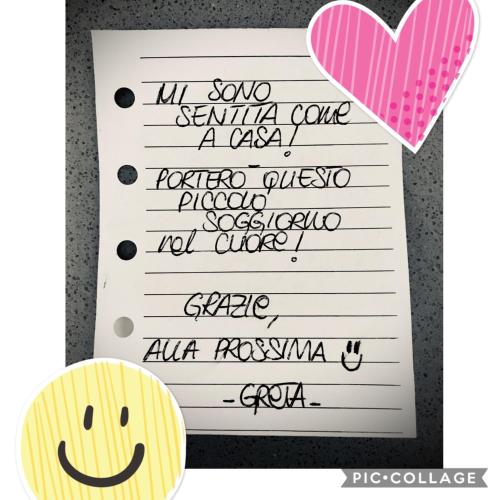 MI SONO
SENTITA COME
A CASA!
PORTERÒ QUESTO
PICCOLO
SOGGIORNO
nel CUORE!
GRAZIE,
ALLA PROSSIMA
-GRETA-
PIC•COLLAGE